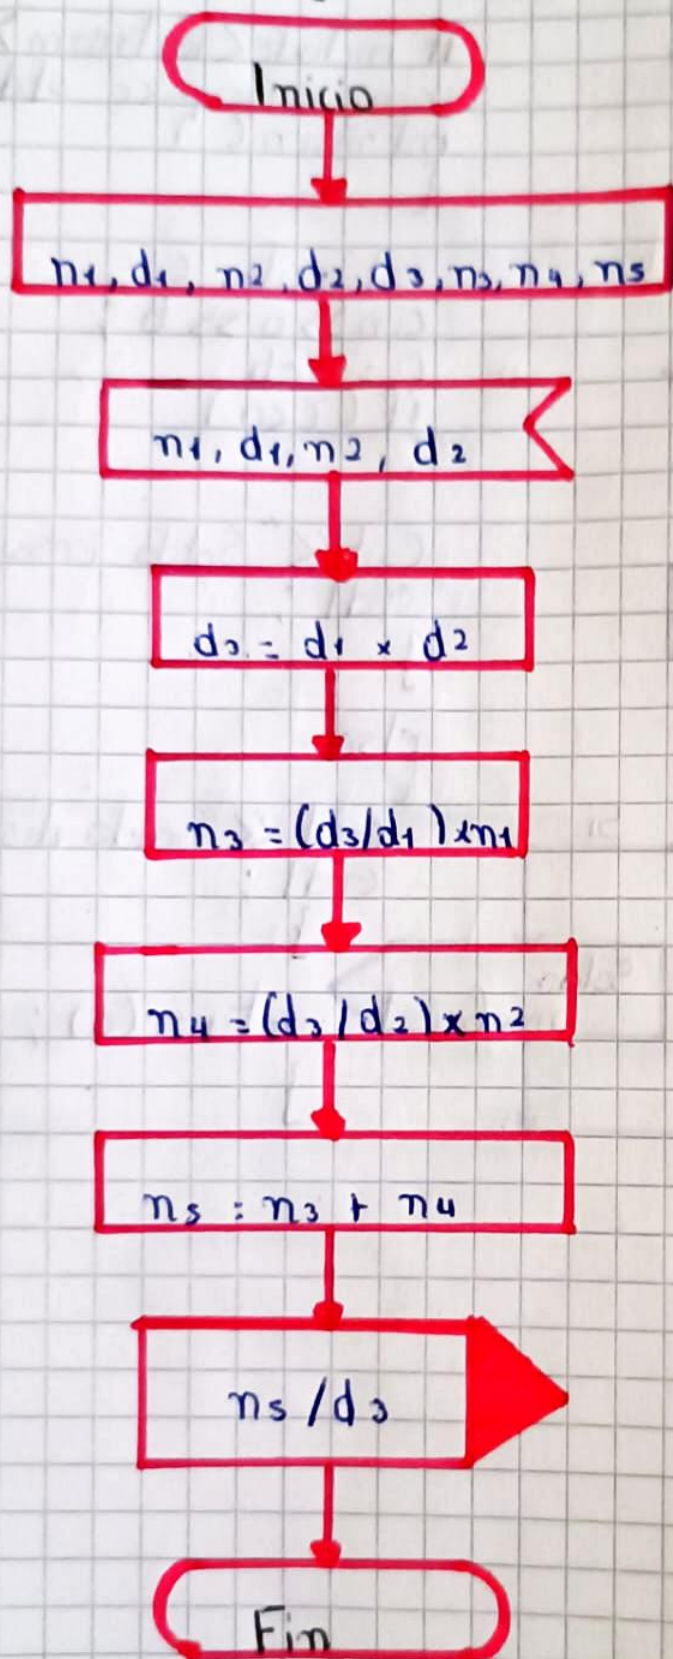 Inicio
n1, d1, n2, d2, d3, n3, n4, n5
n1, d1, n2, d2
d3 = d1 x d2
n3 = (d3/d1) x n1
n4 = (d3/d2) x n2
n5 = n3 + n4
n5/d3
Fin